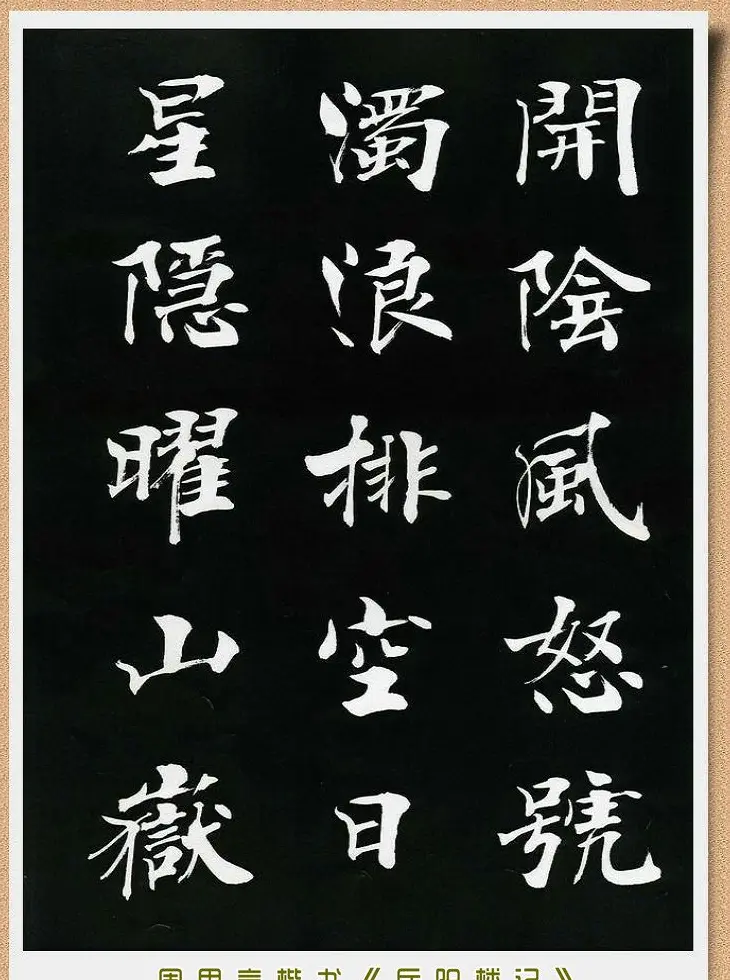 開陰風怒號
濁浪排空日
星隠曜山嶽
楷书《岳阳楼记》